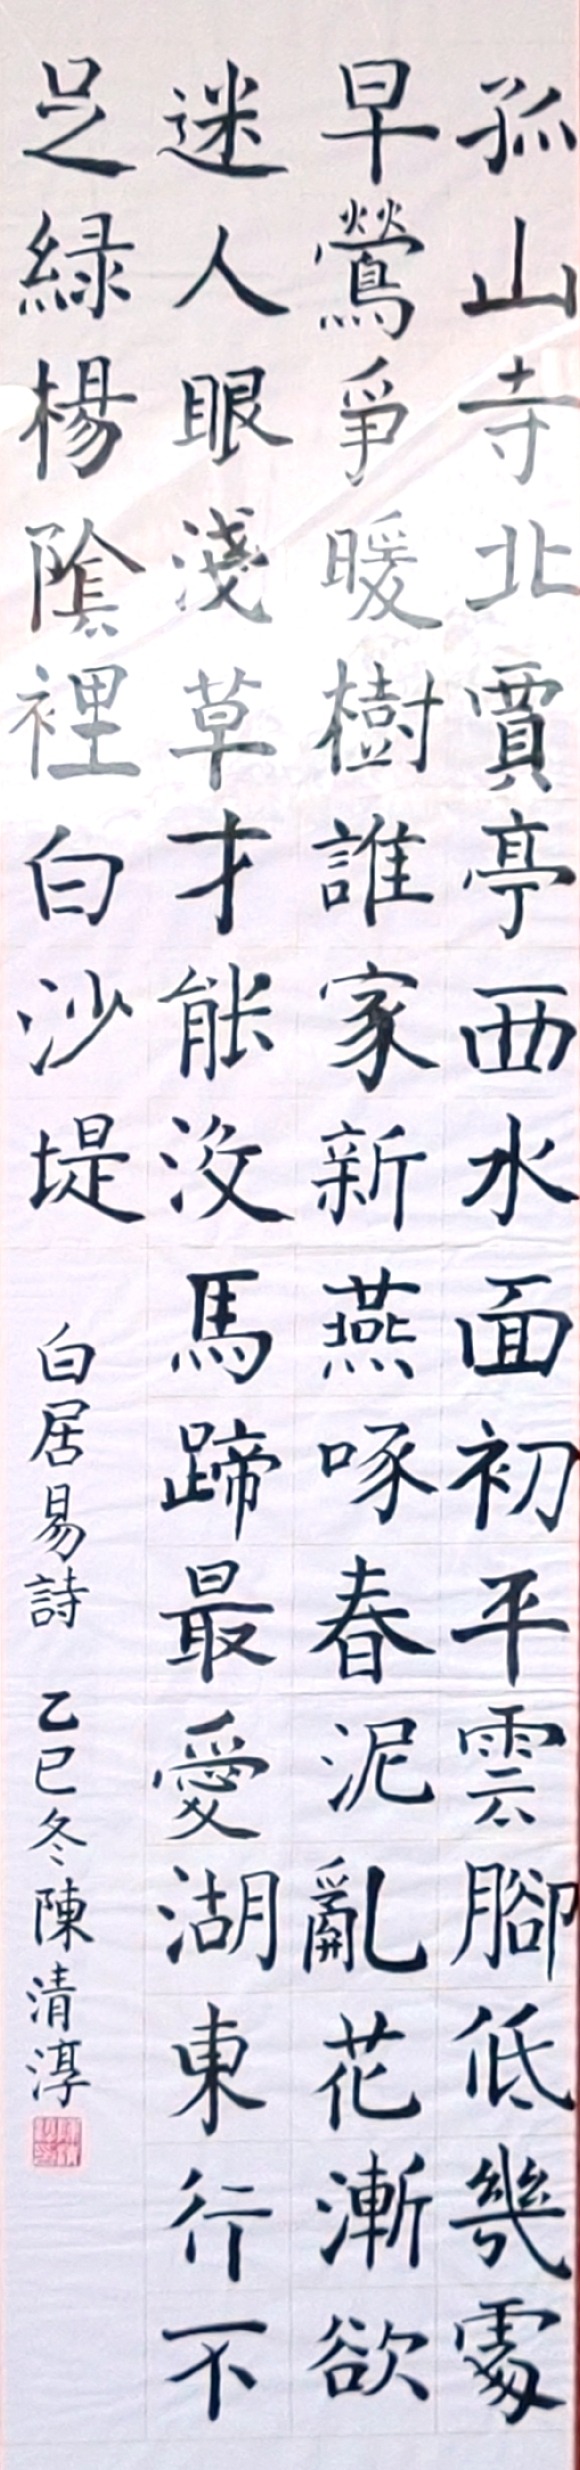 孤山寺北賈亭西水面初平雲腳低幾處
早鶯爭暖樹誰家新燕啄春泥亂花漸欲
迷人眼淺草才能沒馬蹄最愛湖東行不
足綠楊陰裡白沙堤
白居易詩 乙巳冬陳清淳